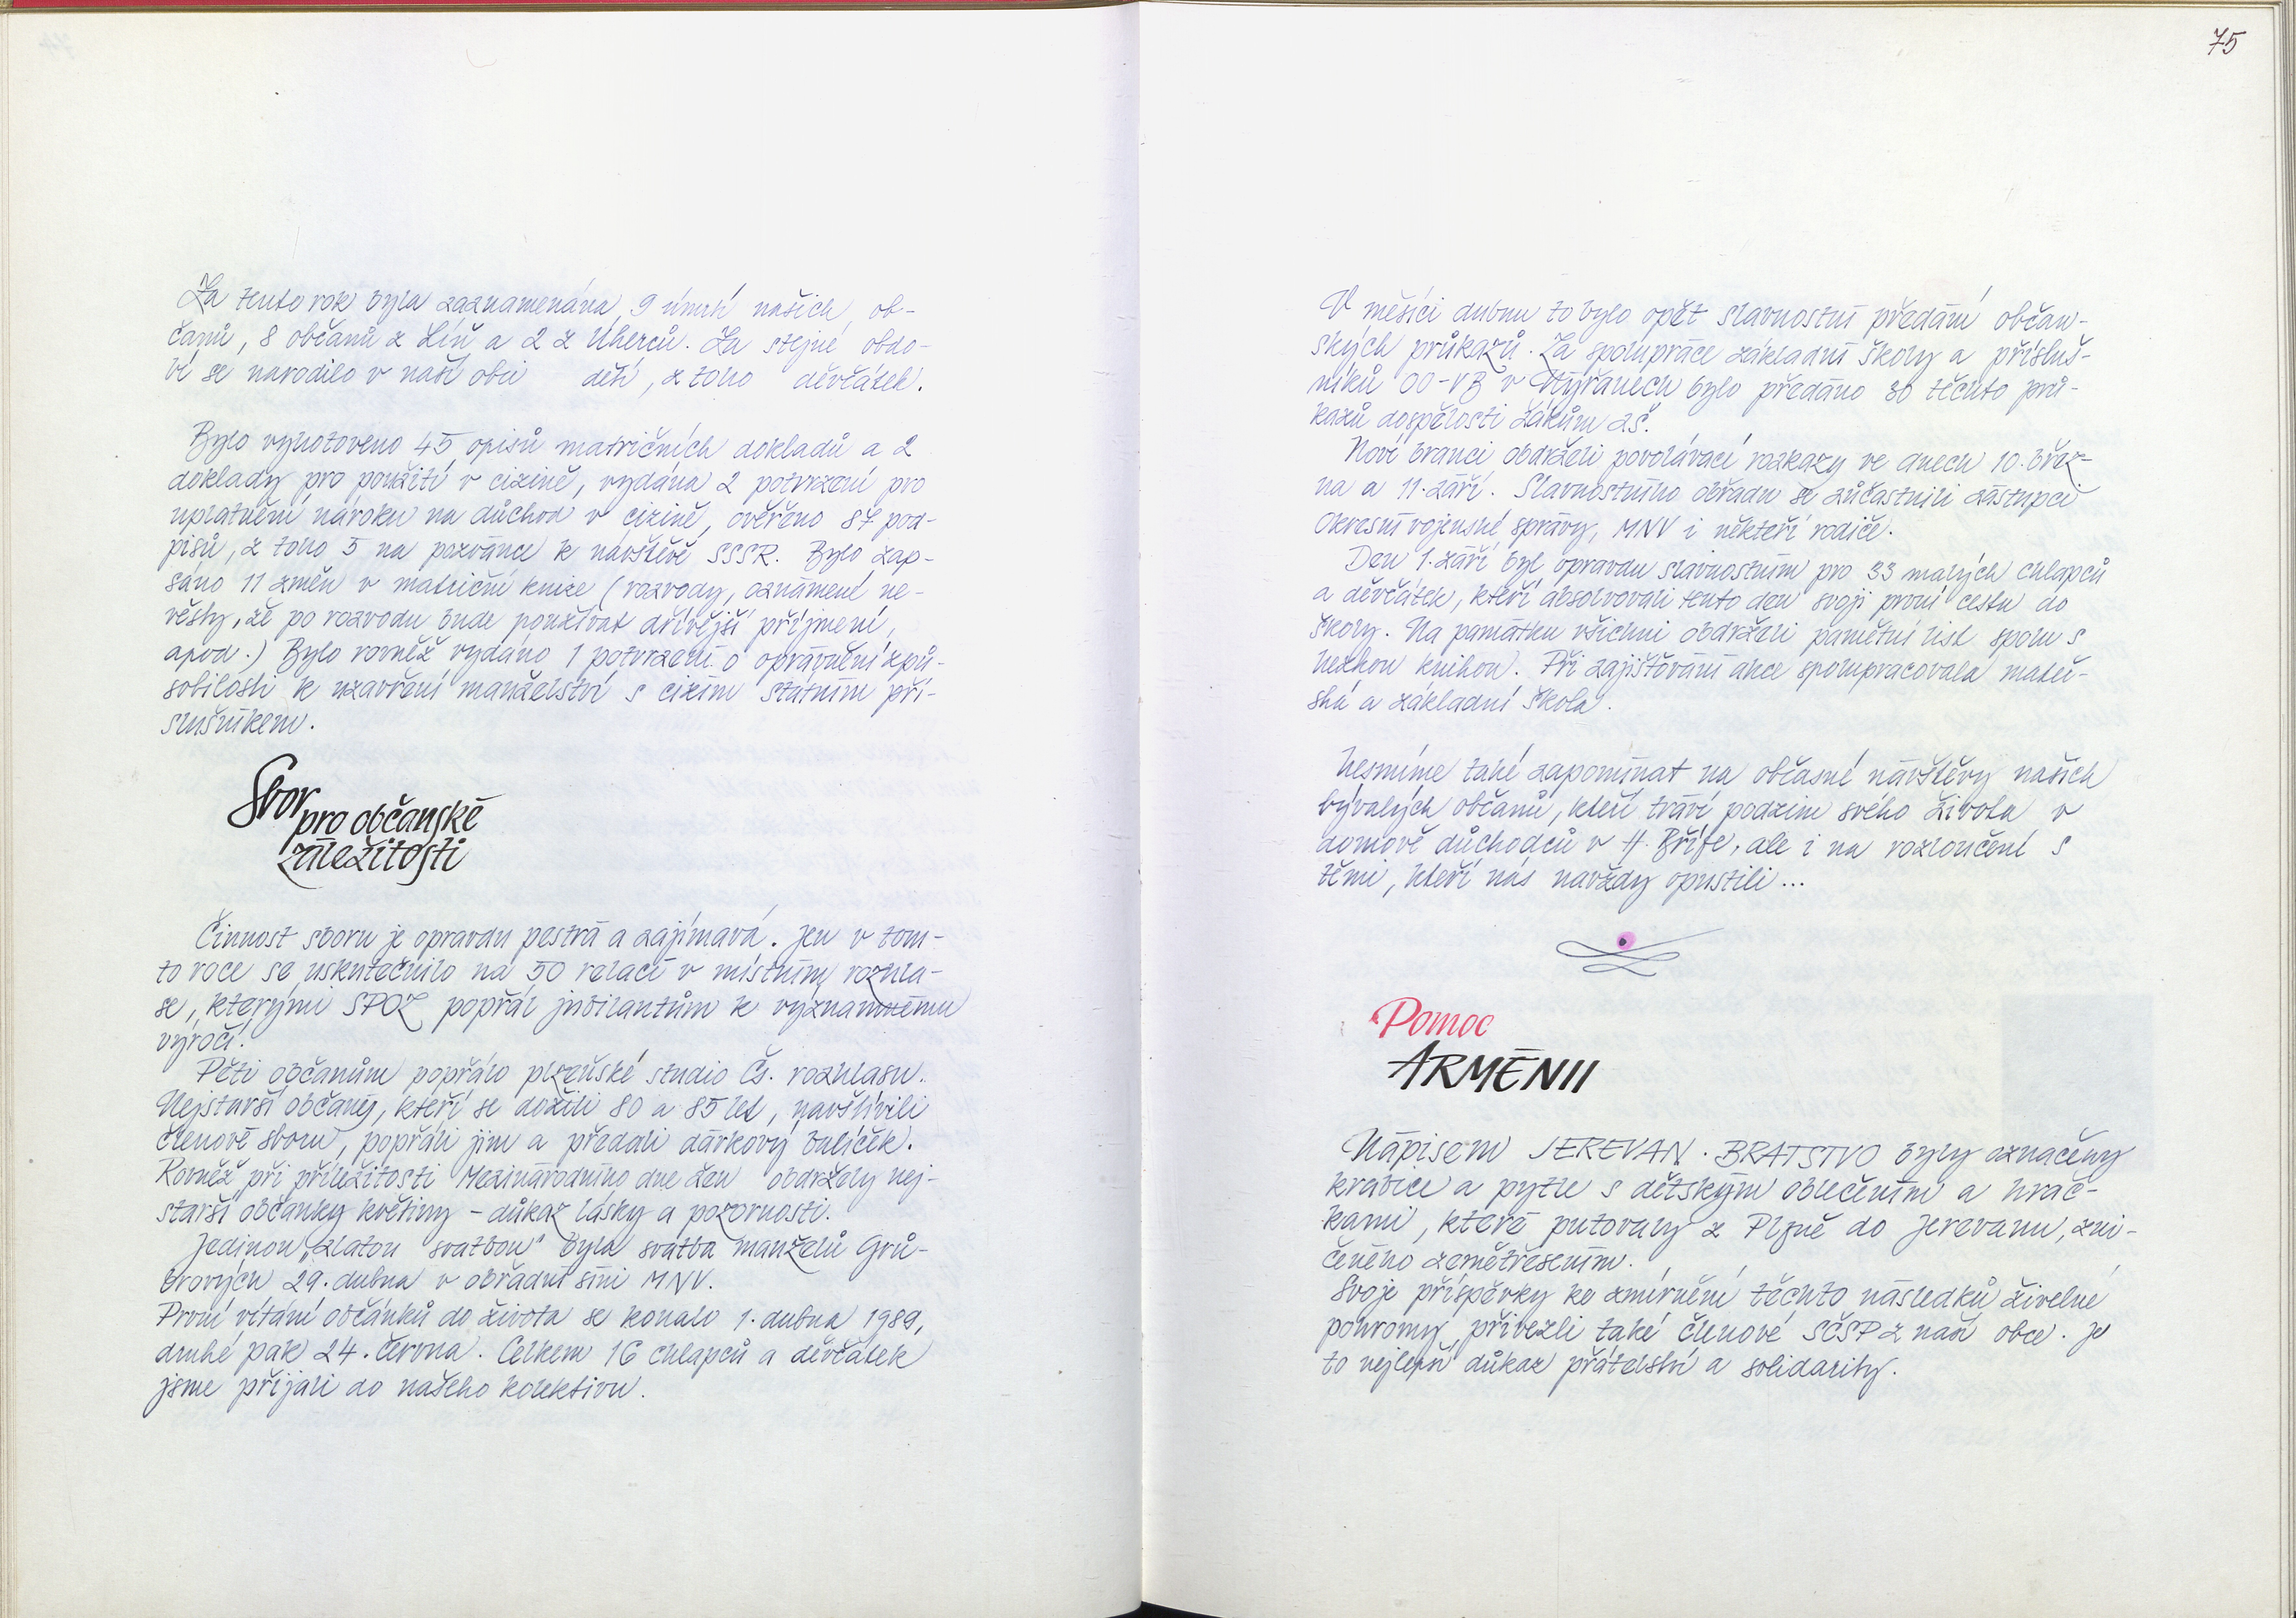 Za tento rok byla zaznamenána 9 úmrtí našich ob-
čanů, 8 občanů z Líň a 2 z Úherců. Za stejné obdo-
bí se narodilo v naší obci děti, z toho děvčátek.
Bylo vyhotoveno 45 opisů matričních dokladů a 2
doklady pro použití v cizině, vydána 2 potvrzení pro
uplatnění nároku na důchod v cizině, ověřeno 87 pod-
pisů, z toho 5 na pozvánce k návštěvě SSSR. Bylo zap-
sáno 11 změn v matriční knize (rozvody, oznámení ne-
věsty, že po rozvodu bude používat dřívější příjmení,
apod.) Bylo rovněž vydáno 1 potvrzení o oprávnění způ-
sobilosti k uzavření manželství s cizím státním pří-
slušníkem.
Sbor
pro občanské
záležitosti
Činnost sboru je opravdu pestrá a zajímavá. Jen v tom-
to roce se uskutečnilo na 50 relací v místním rozhla-
se, kterými SPOZ popřál jubilantům k významnému
výročí.
Pěti občanům popřálo plzeňské studio Čs. rozhlasu.
Nejstarší občany, kteří se dožili 80 a 85 let, navštívili
členové sboru, popřáli jim a předali dárkový balíček.
Rovněž při příležitosti Mezinárodního dne žen obdržely nej-
starší občanky květiny - důkaz lásky a pozornosti.
Jedinou „zlatou svatbou" byla svatba manželů Grů-
brových 29. dubna v obřadní síni MNV.
První vítání občánků do života se konalo 1. dubna 1989,
druhé pak 24. června. Celkem 16 chlapců a děvčátek
jsme přijali do našeho kolektivu.
75
V měsíci dubnu to bylo opět slavnostní předání občan-
ských průkazů. Za spolupráce základní školy a přísluš-
níků OO-VB v Nýřanech bylo předáno 30 těchto prů-
kazů dospělosti žákům ZŠ.
Noví branci obdrželi povolávací rozkazy ve dnech 10. břez-
na a 11. září. Slavnostního obřadu se zúčastnili zástupci
Okresní vojenské správy, MNV i někteří rodiče.
Den 1. září byl opravdu slavnostním pro 33 malých chlapců
a děvčátek, kteří absolvovali tento den svoji první cestu do
školy. Na památku všichni obdrželi pamětní list spolu s
hezkou knihou. Při zajišťování akce spolupracovala mateř-
ská a základní škola.
Nesmíme také zapomínat na občasné návštěvy našich
bývalých občanů, kteří tráví podzim svého života v
domově důchodců v H. Bříze, ale i na rozloučení s
těmi, kteří nás navždy opustili...
Pomoc
ARMÉNII
Nápisem JEREVAN. BRATSTVO byly označeny
krabice a pytle s dětským oblečením a hrač-
kami, které putovaly z Plzně do Jerevanu, zni-
čeného zemětřesením.
Svoje příspěvky ke zmírnění těchto následků živelné
pohromy přivezli také členové SČSP z naší obce. Je
to nejlepší důkaz přátelství a solidarity.